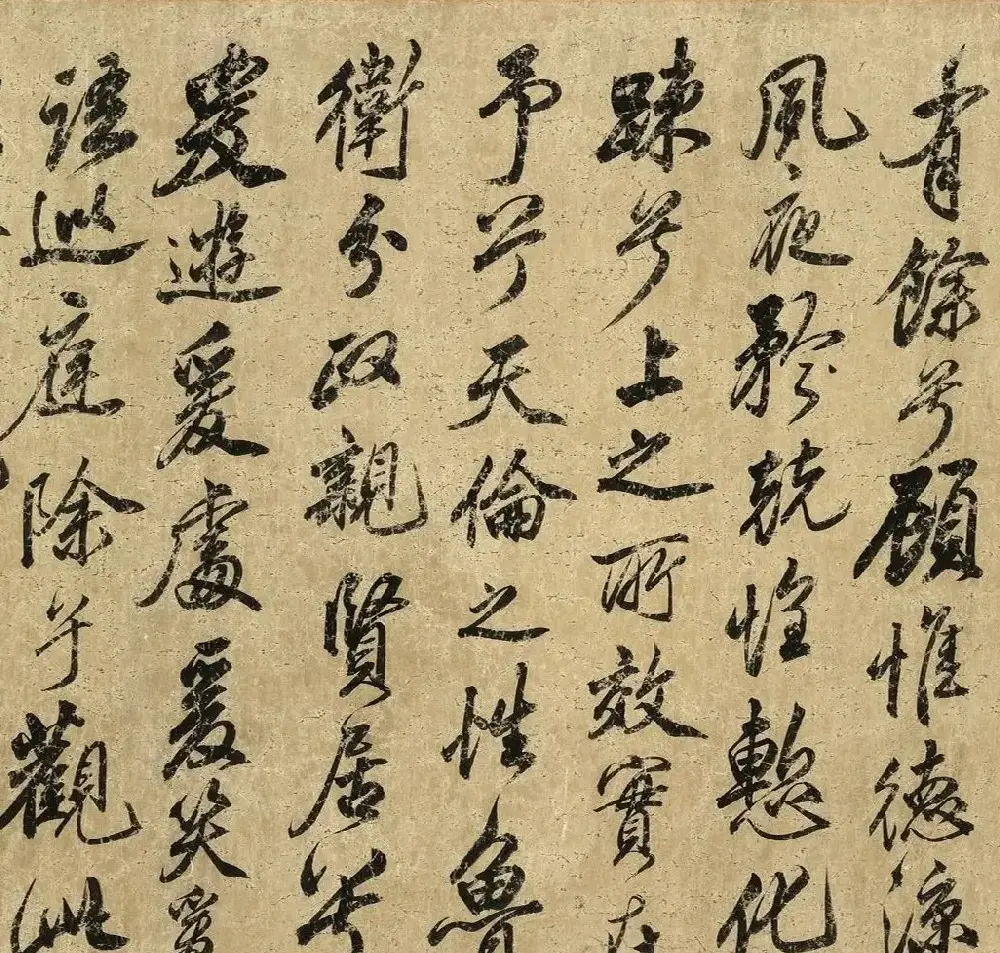 有餘兮顧惟德涼
夙夜兢惶慙化
踈兮上之所效實在
予兮天倫之性魯
衛分政親賢居兮
爰遊爰處爰笑爰
語巡庭除兮觀此